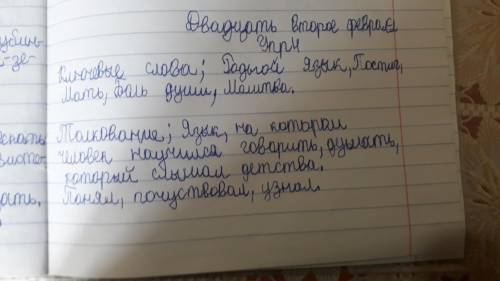 Двадцать второе февраля
Упрн
Ключевые слова; Родной язык, Постиг,
Мать, боль души, Молитва.
Толкование; Язык, на котором
человек научился говорить, думать,
который слышал детства.
Понял, почуствовал, узнал.